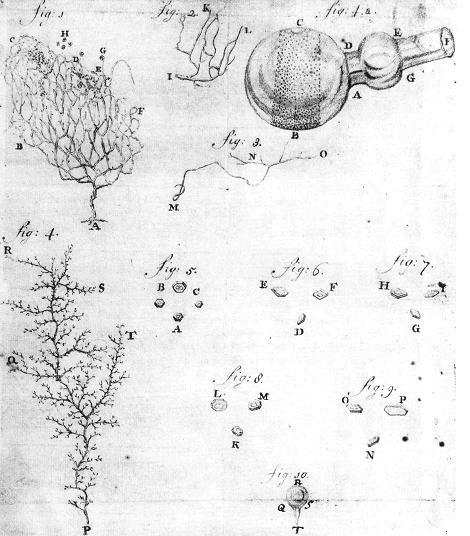 fig: 1
fig: 2.
fig: 1. a.
K
L
I
H
C
D
G
E
F
B
A
C
D
E
F
G
A
B
fig: 3.
N
O
M
fig: 4.
R
S
T
Q
P
fig: 5.
B
C
A
fig: 6.
E
F
D
fig: 7.
H
I
G
fig: 8.
L
M
K
fig: 9.
O
P
N
fig: 10.
R
Q
S
T